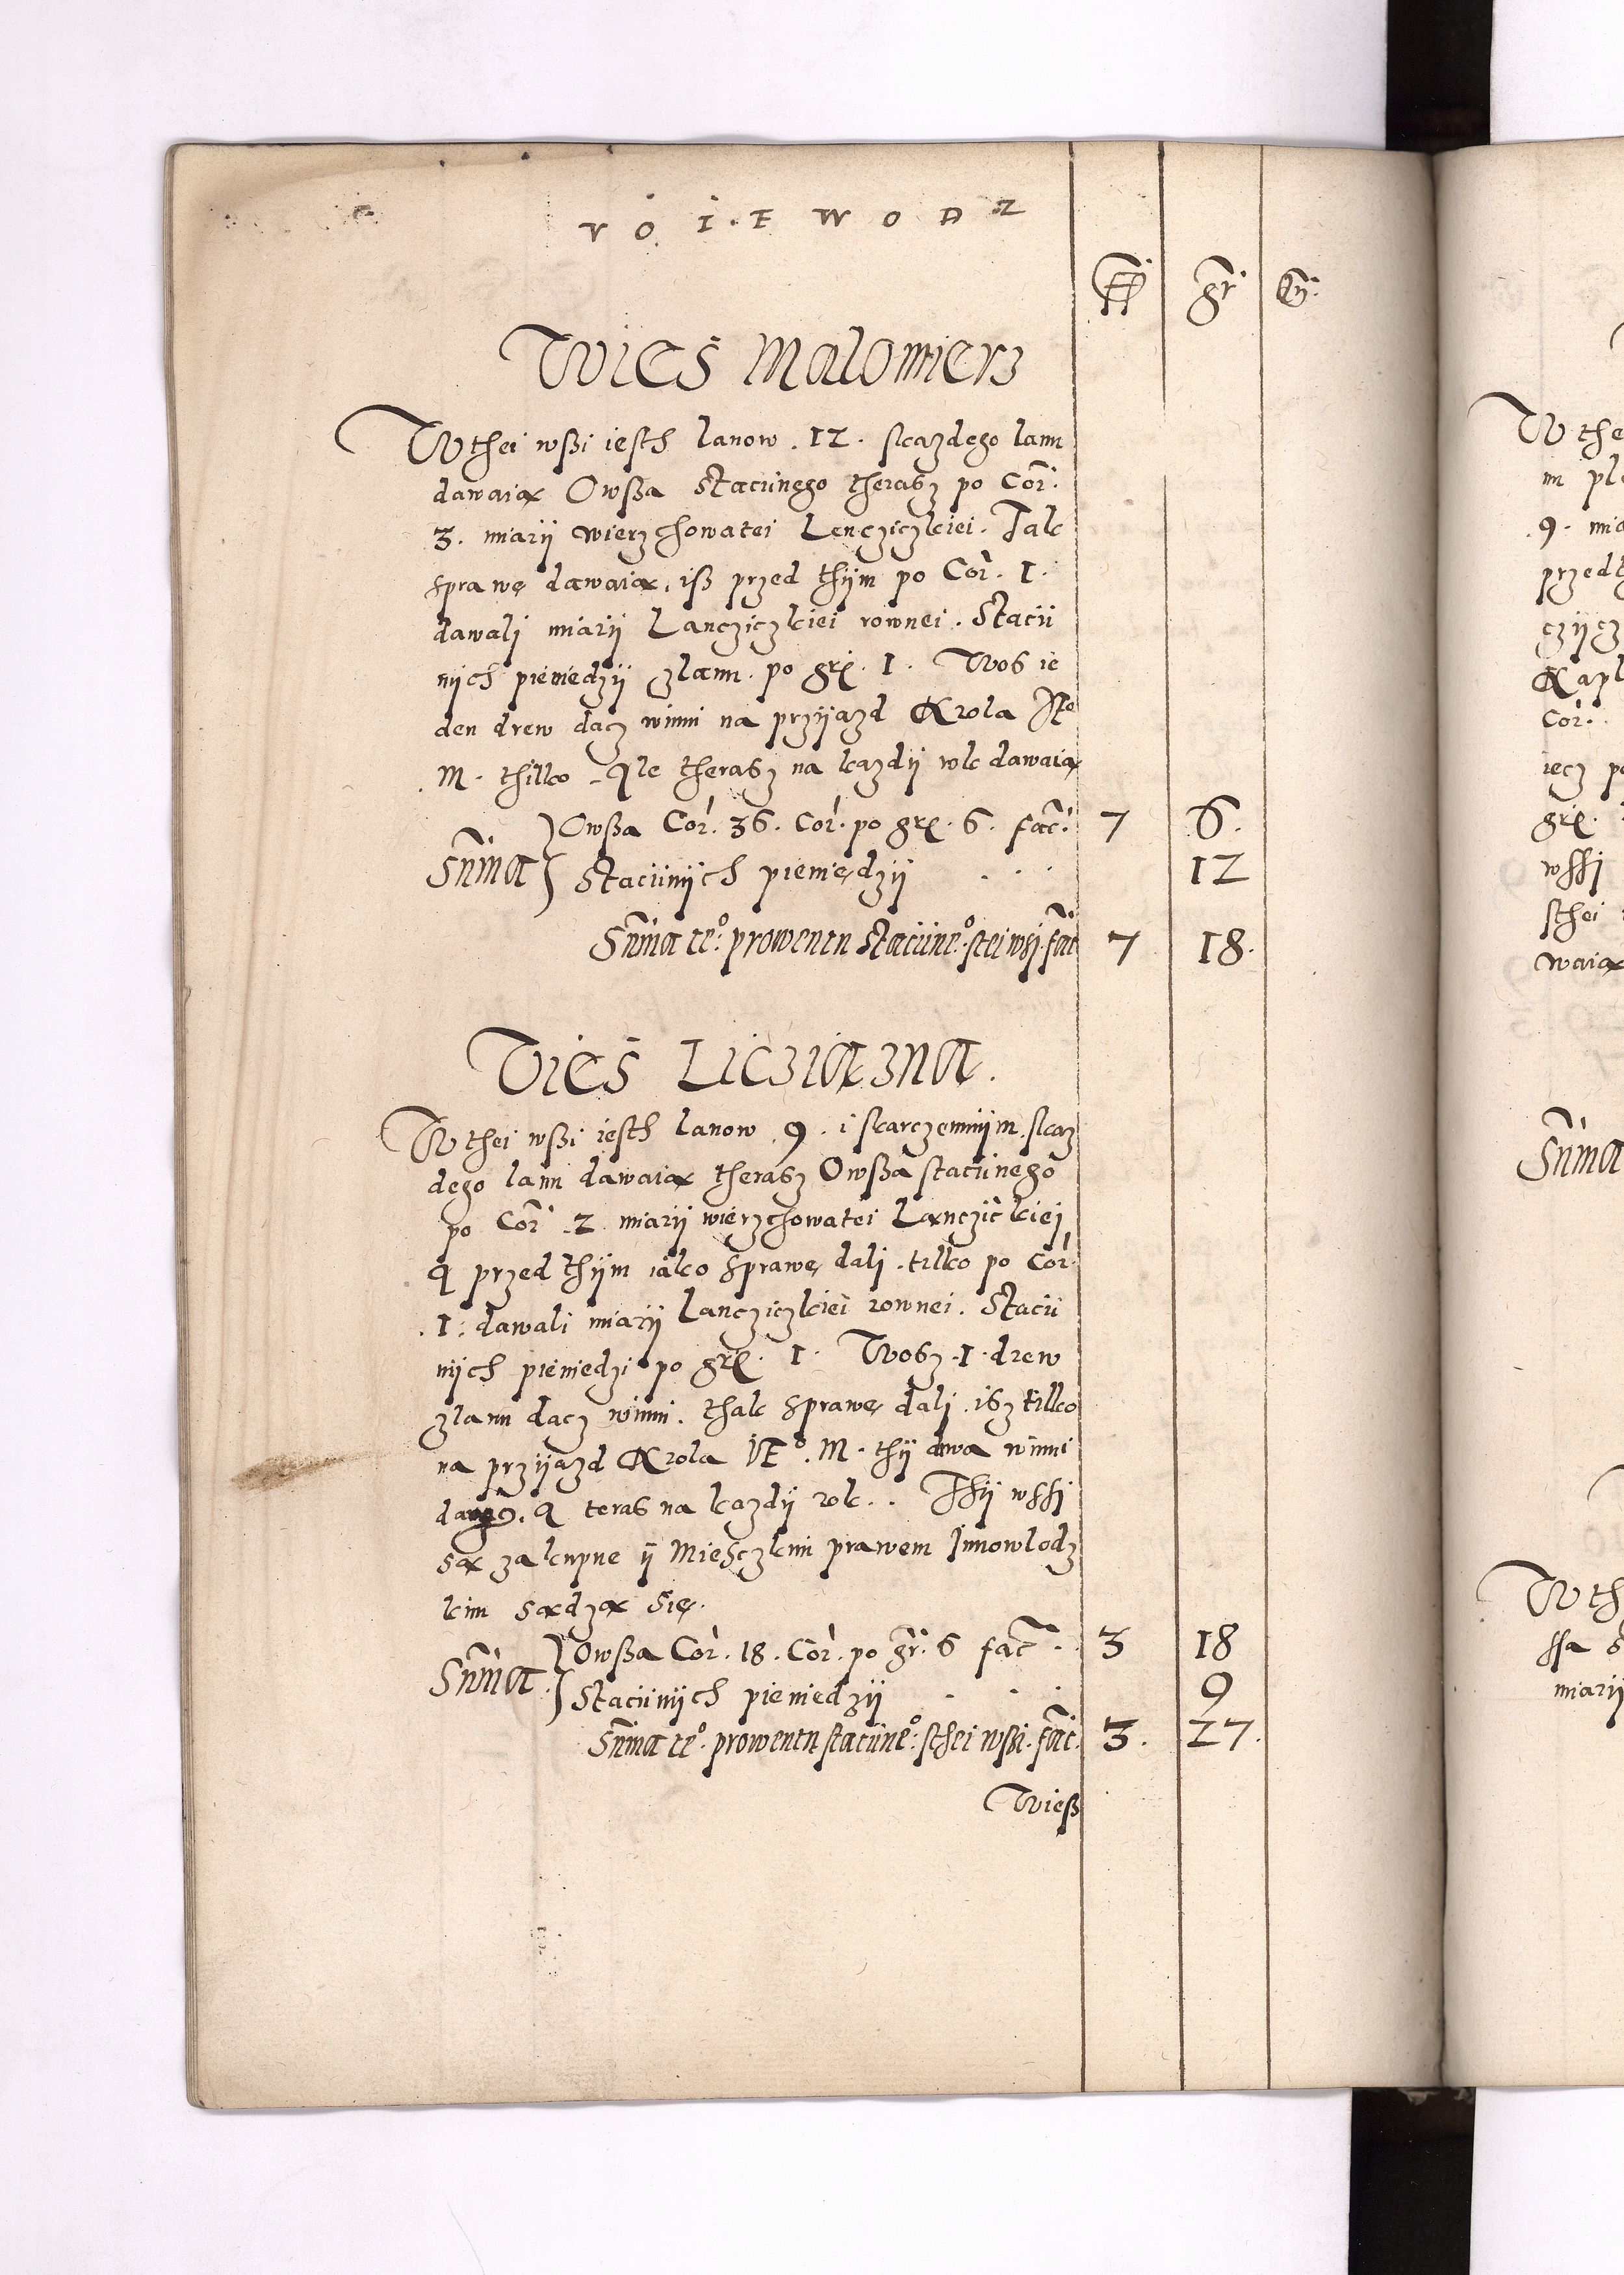 VOIEWODZ
ff gr
Wies Malomierz
W thei wßi iesth lanow . 12 . skazdego lanu
dawaią Owßa Staciinego therasz po Cor.
3. miarÿ wierzchowatei Lencziczkiei. Tak
sprawę dawaią, iß przed thÿm po Cor. 1.
dawali miarÿ Lancziczkiei rownei. Stacii
nÿch pieniedzÿ zlanu po grę. 1. Wos ie
den drew dacz winni na przÿiazd Krola
M. thilko. Ale therasz na kazdÿ rok dawaią
Summa
Owßa Cor. 36. Cor. po grę. 6. fac. 7 6.
Staciinÿch pieniędzÿ . . . 12
Summa teo. prowentu Staciineo. stei wsi. fac 7 18.
Vies Licziązna.
W thei wßi iesth lanow . 9 . i skarczemnÿm. skaz
dego lanu dawaią therasz Owßa staciinego
po Cor. 2 miarÿ wierzchowatei Lanczickiei
A przed thÿm iako sprawę dali. tilko po Cor.
.1. dawali miarÿ Lancziczkiei rownei. Stacii
nÿch pieniedzi po grę. 1. Wosz .1. drew
zlanu dacz winni. thak sprawę dali. isz tilko
na przÿiazd Krola M. thÿ dwa winni
A teras na kazdÿ rok. . Thÿ wssi
są zakupne ÿ Miesczkim prawem Innowlodz
kim sądzą się.
Summa.
Owßa Cor. 18. Cor. po gr. 6 fac. 3 18
Staciinÿch pieniedzÿ . . . 9
Summa teo. prowentu staciineo. sthei wßi. fac. 3. 27.
Wieß